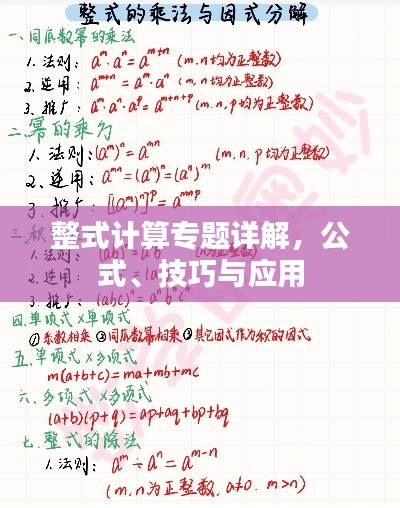 整式的乘法与因式分解
一、同底数幂的乘法
1.法则: aᵐ·aⁿ=aᵐ⁺ⁿ (m.n均为正整数)
2.逆用: aᵐ⁺ⁿ=aᵐ·aⁿ (m,n均为正整数)
3.推广: aᵐ·aⁿ·aᵖ=aᵐ⁺ⁿ⁺ᵖ(m.n,p均为正整数)
二.幂的乘方
1.法则:(aᵐ)ⁿ=aᵐⁿ (m,n,p均为正整数)
2.逆用: aᵐⁿ=(aᵐ)ⁿ=(aⁿ)ᵐ
3.推广: [(aᵐ)ⁿ]ᵖ=aᵐⁿᵖ
整式计算专题详解，公
式、技巧与应用
三.积
1.法则:
2.逆用:
3.推广: (abc)ⁿ
四.单项式×单项式
①系数相乘 ②同底数幂相乘 ③其它因式作为积的因式
五.单项式×多项式
m(a+b+c)=ma+mb+mc
六、多项式×多项式
(a+b)(p+q)=ap+aq+bp+bq
七.整式的除法
1.法则: aᵐ÷aⁿ=aᵐ⁻ⁿ
(m,n为正整数,a≠0.m>n)